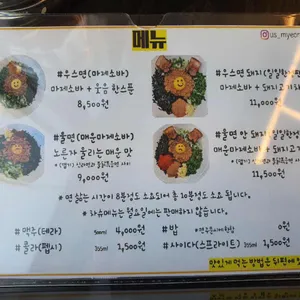 메뉴
us_myeon
#우스면(마제소바)
마제소바 + 웅응 한스푼
8,500원
#우스면 돼지
마제소바 + 돼지고기
11,000원
#훌면(매운마제소바)
노른자 훌리는 매운 맛
9,000원
#훌면 앤 돼지
매운마제소바 + 돼지
11,500원
*면 삶는 시간이 8분정도 소요되어 총 10분정도 소요 됩니다.
*차슈메뉴는 월요일에는 판매하지 않습니다.
#맥주(테라) 500ml 4,000원
#밥 0원
#콜라(펩시) 355ml 1,500원
#사이다(스프라이트) 355ml 1,500원
맛있게 먹는 방법은 뒤편에